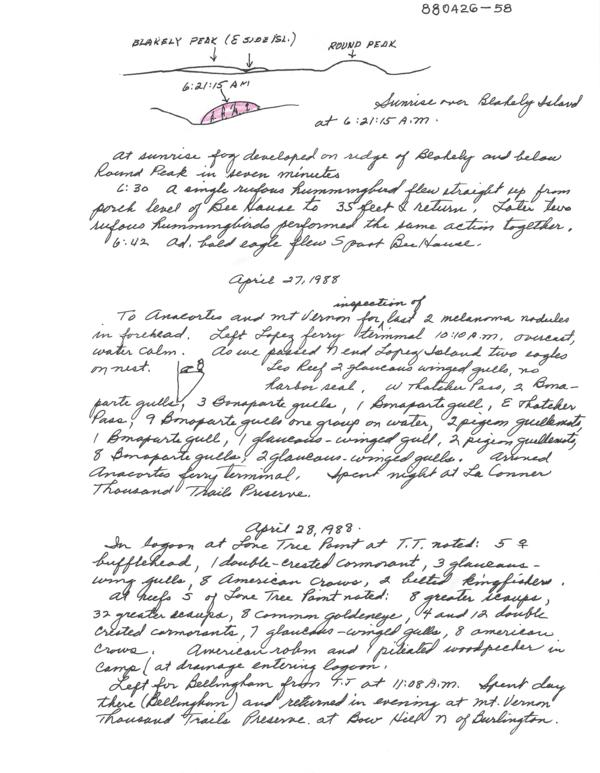 880426-58
BLAKELY PEAK (E SIDE/ISL.) ROUND PEAK
6:21:15 AM
Sunrise over Blakely Island
at 6:21:15 A.M.
At sunrise fog developed on ridge of Blakely and below
Round Peak in seven minutes
6:30 A single rufous hummingbird flew straight up from
porch level of Bee House to 35 feet & return. Later two
rufous hummingbirds performed the same action together.
6:42 Ad. bald eagle flew S past Bee House.
April 27, 1988
inspection of
To Anacortes and Mt Vernon for last 2 melanoma nodules
in forehead. Left Lopez ferry terminal 10:10 A.M. overcast,
water calm. As we passed N end Lopez Island two eagles
on nest. Leo Reef 2 glaucous winged gulls, no
harbor seal, W Thatcher Pass, 2 Bona-
parte gulls, 3 Bonaparte gulls, 1 Bonaparte gull, E Thatcher
Pass, 9 Bonaparte gulls one group on water, 2 pigeon guillemots,
1 Bonaparte gull, 1 glaucous-winged gull, 2 pigeon guillemots,
8 Bonaparte gulls, 2 glaucous-winged gulls. Arrived
Anacortes ferry terminal. Spent night at La Conner
Thousand Trails Preserve.
April 28, 1988.
In lagoon at Lone Tree Point at T.T. noted: 5 ♀
bufflehead, 1 double-crested cormorant, 3 glaucous-
wing gulls, 8 American Crows, 2 belted kingfishers.
At reefs S of Lone Tree Point noted: 8 greater scaups,
32 greater scaups, 8 common goldeneye, 4 and 12 double
crested cormorants, 7 glaucous-winged gulls, 8 american
crows. American robin and 1 pileated woodpecker in
camp (at drainage entering lagoon.
Left for Bellingham from T.T at 11:08 A.M. Spent day
there (Bellingham) and returned in evening at Mt. Vernon
Thousand Trails Preserve at Bow Hill N of Burlington.